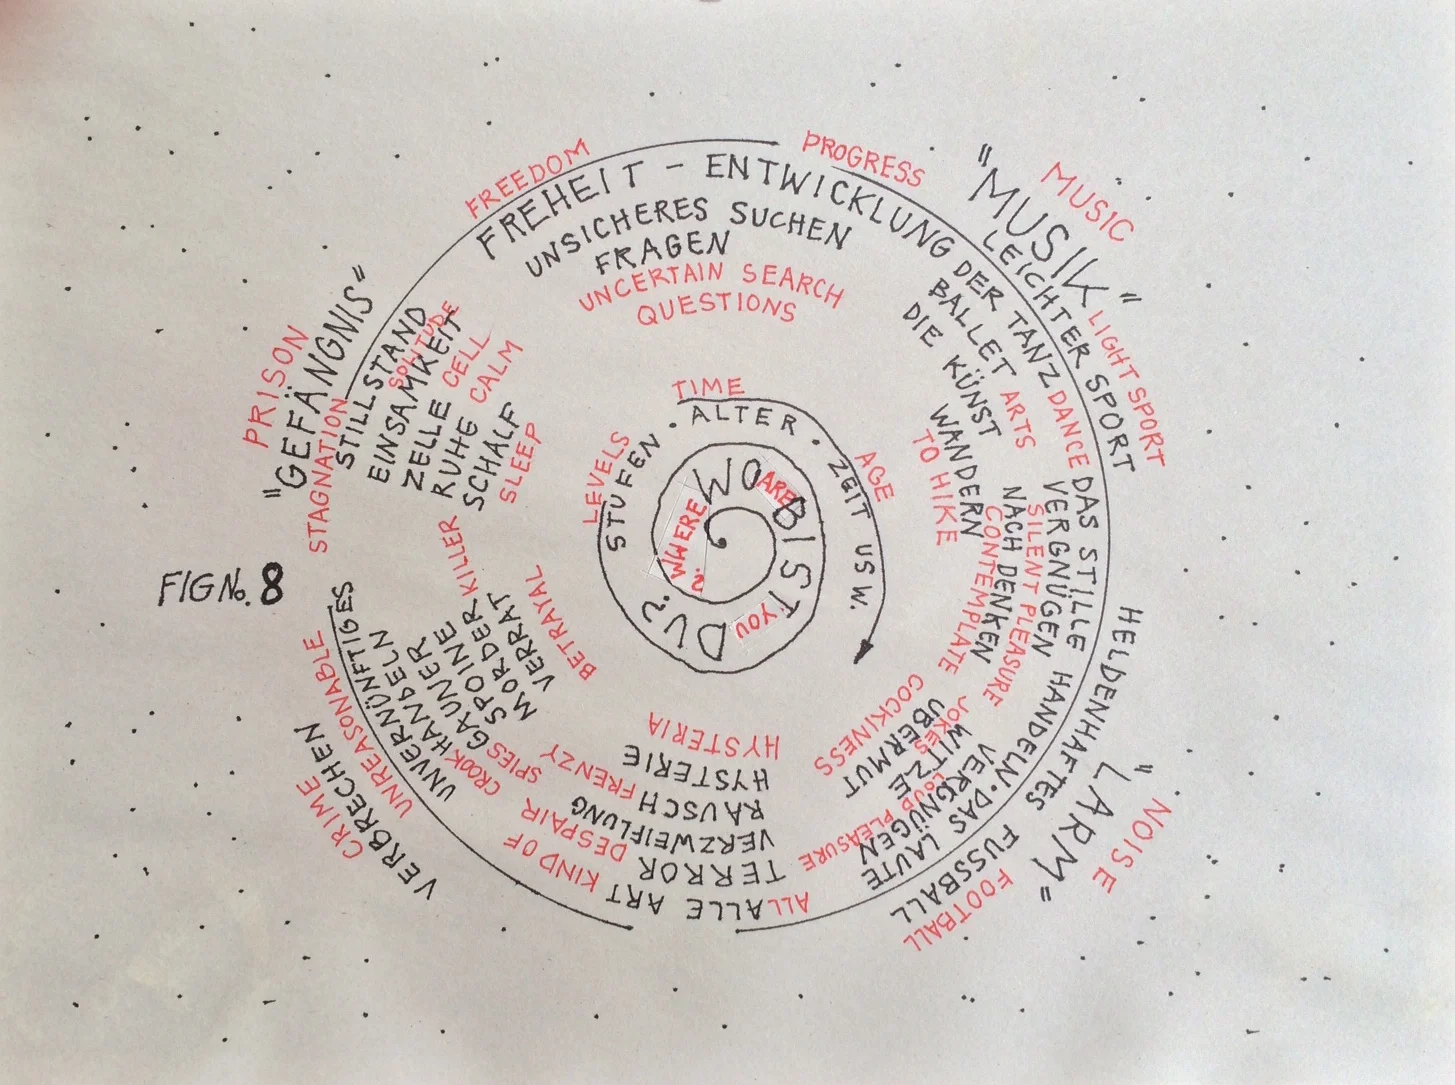 FREEDOM
PROGRESS
FREHEIT - ENTWICKLUNG DER TANZ DANCE
UNSICHERES SUCHEN
FRAGEN
UNCERTAIN SEARCH
QUESTIONS
MUSIC
"MUSIK"
LEICHTER SPORT
LIGHT SPORT
BALLET ARTS
DIE KÜNST
WANDERN
TO HIKE
DAS STILLE
VERGNÜGEN
SILENT PLEASURE
NACH DENKEN
CONTEMPLATE
HELDENHAFTES HANDELN.
"LARM"
NOISE
FUSSBALL
FOOTBALL
DAS LAUTE
VERGNÜGEN
LOUD PLEASURE
WITZE
JOKES
ÜBERMUT
COCKINESS
ALL
ALLE ART
KIND OF
TERROR
VERZWEIFLUNG
DESPAIR
RAUSCH FRENZY
HYSTERIE
HYSTERIA
VERBRECHEN
CRIME
UNREASONABLE
UNVERNÜNFTIGES
HANDELN
CROOK
GAUNER
SPIES
SPOINE
KILLER
MORDER
VERRAT
BETRAYAL
FIG No. 8
PRISON
"GEFÄNGNIS"
STAGNATION
STILLSTAND
SOLITUDE
EINSAMKEIT
ZELLE CELL
RUHE CALM
SCHALF
SLEEP
TIME
LEVELS
STUFEN . ALTER . ZEIT USW.
AGE
WO BIST DU?
WHERE ARE YOU ?